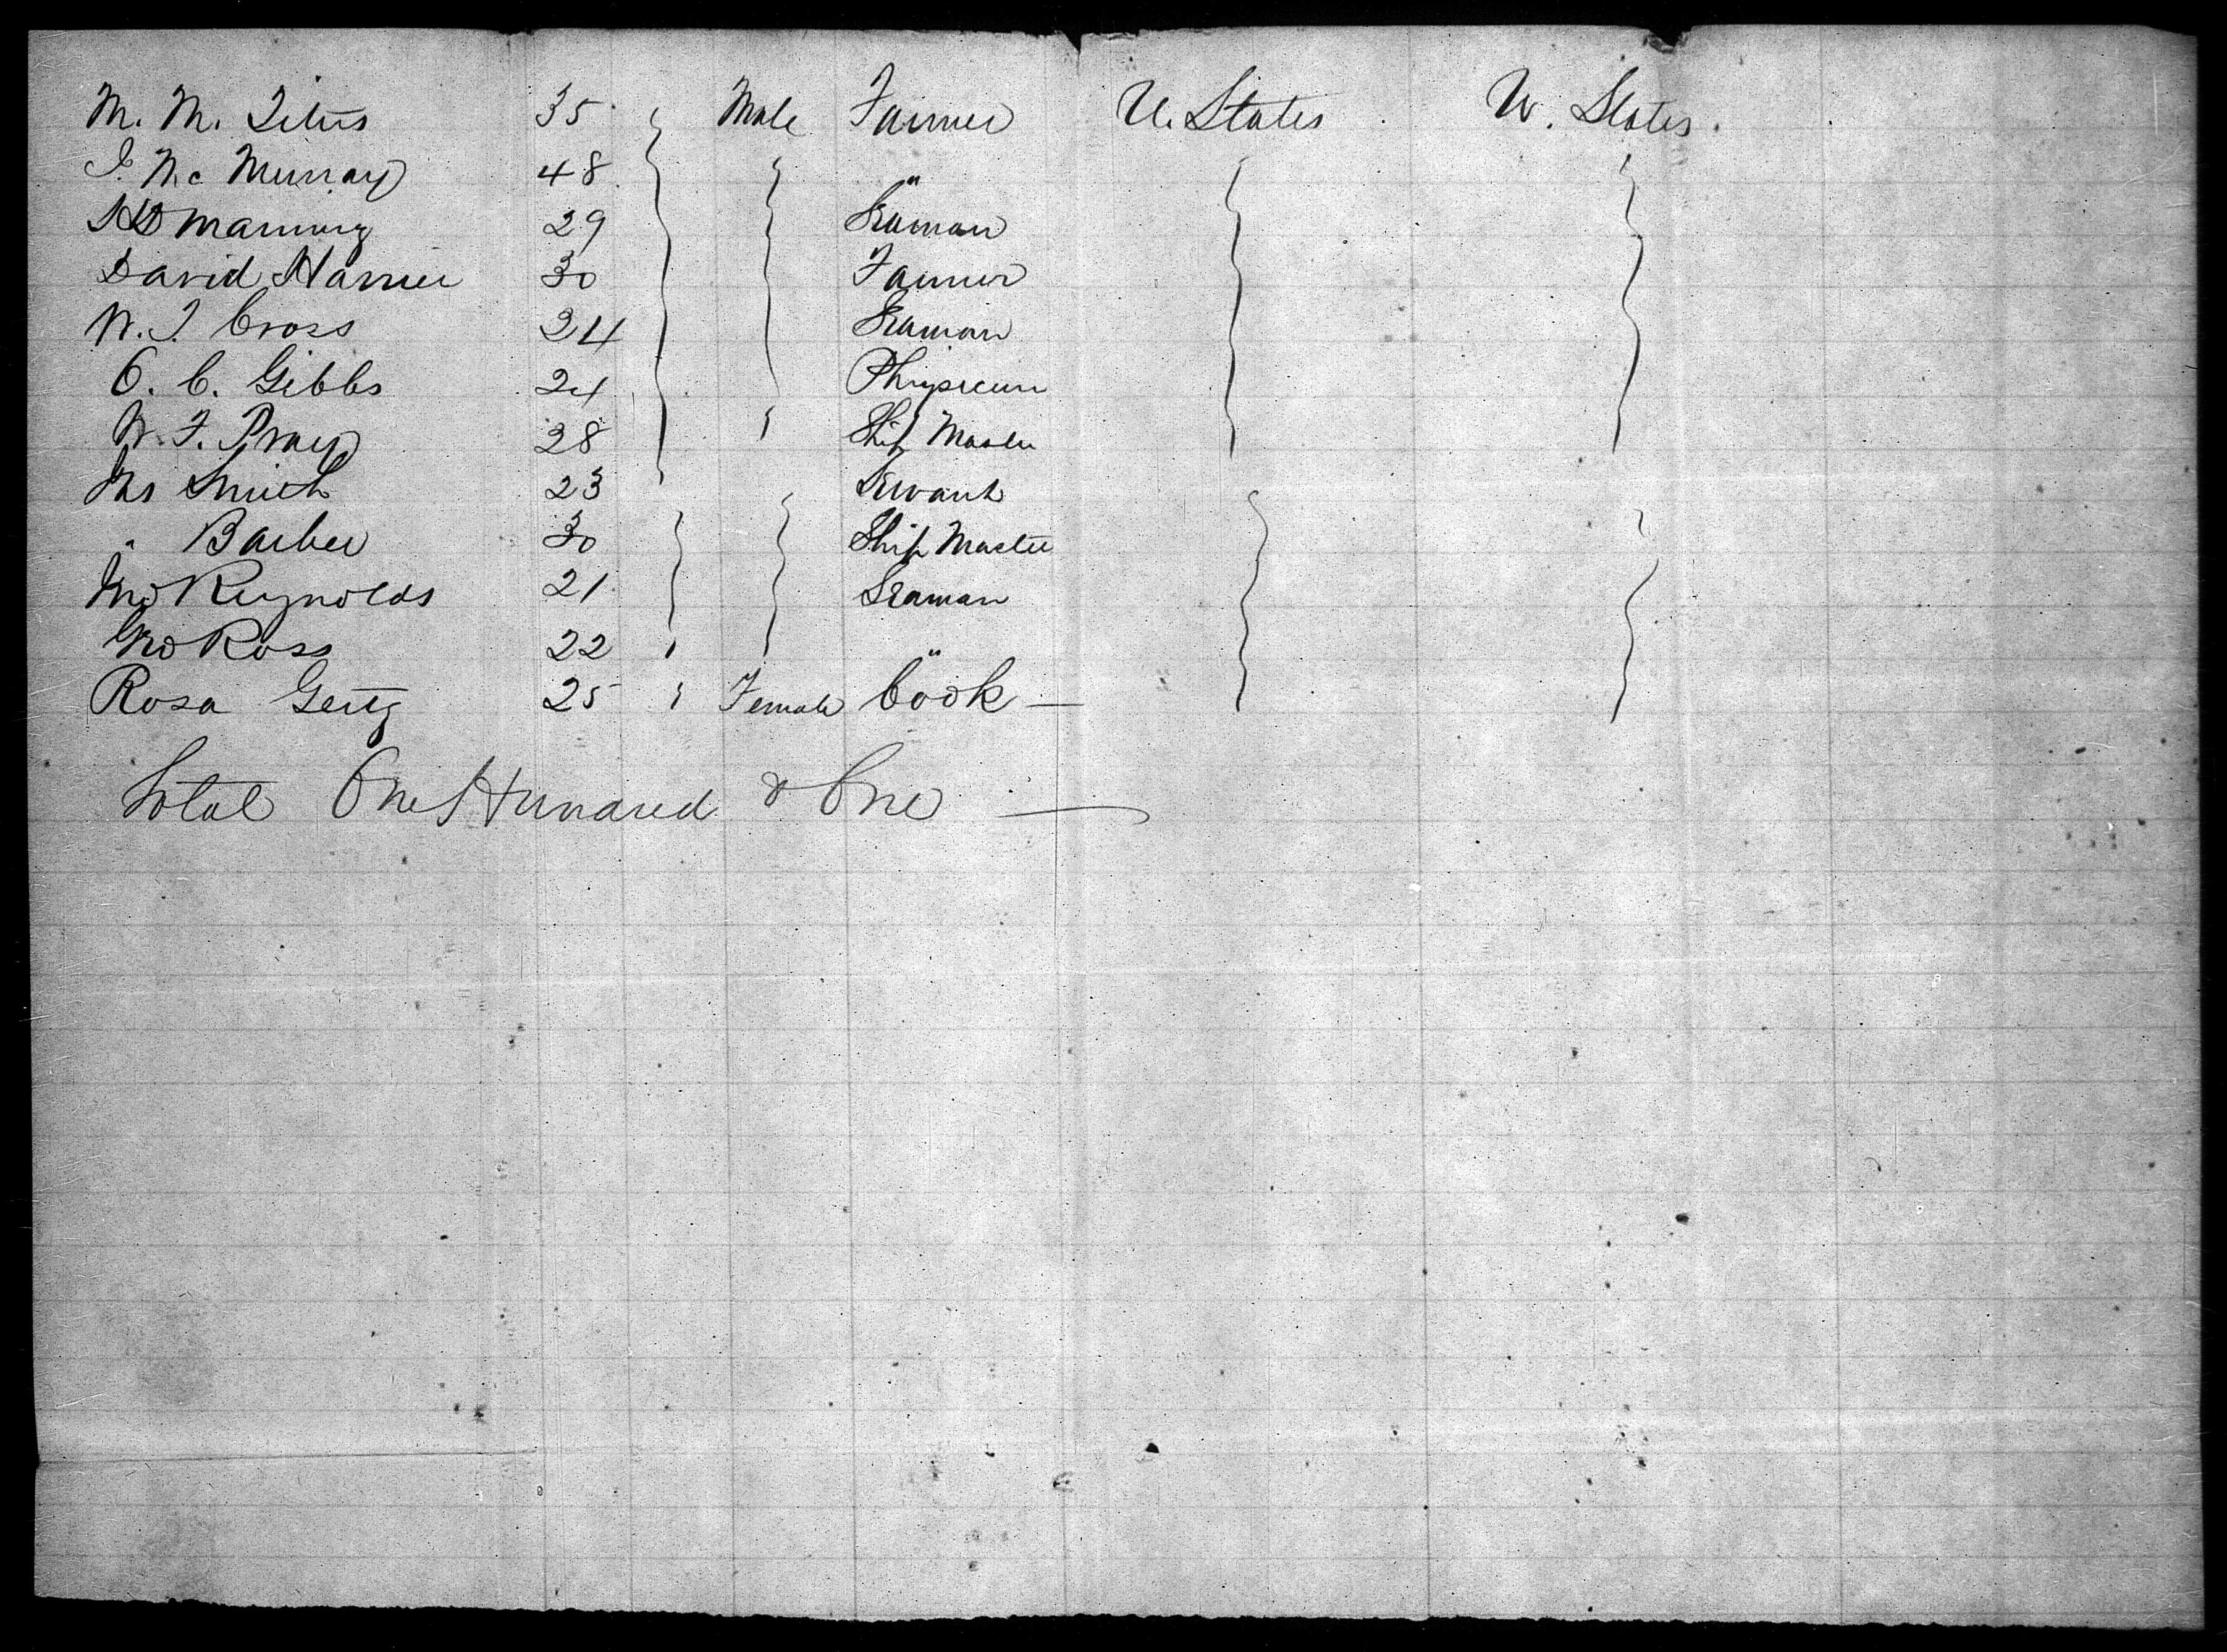 M. M. Titus 35 Male Farmer U. States U. States.
J. Mc Murray 48 "
H D Manning 29 Seaman
David Harner 30 Farmer
W. J. Cross 24 Seaman
O. C. Gibbs 24 Physician
W. F. Pray 28 Ship Master
Jas Smith 23 Servant
" Barber 30 Ship Master
Jno Reynolds 21 Seaman
Jno Ross 22 "
Rosa 25 Female Cook —
Total One Hundred & One —